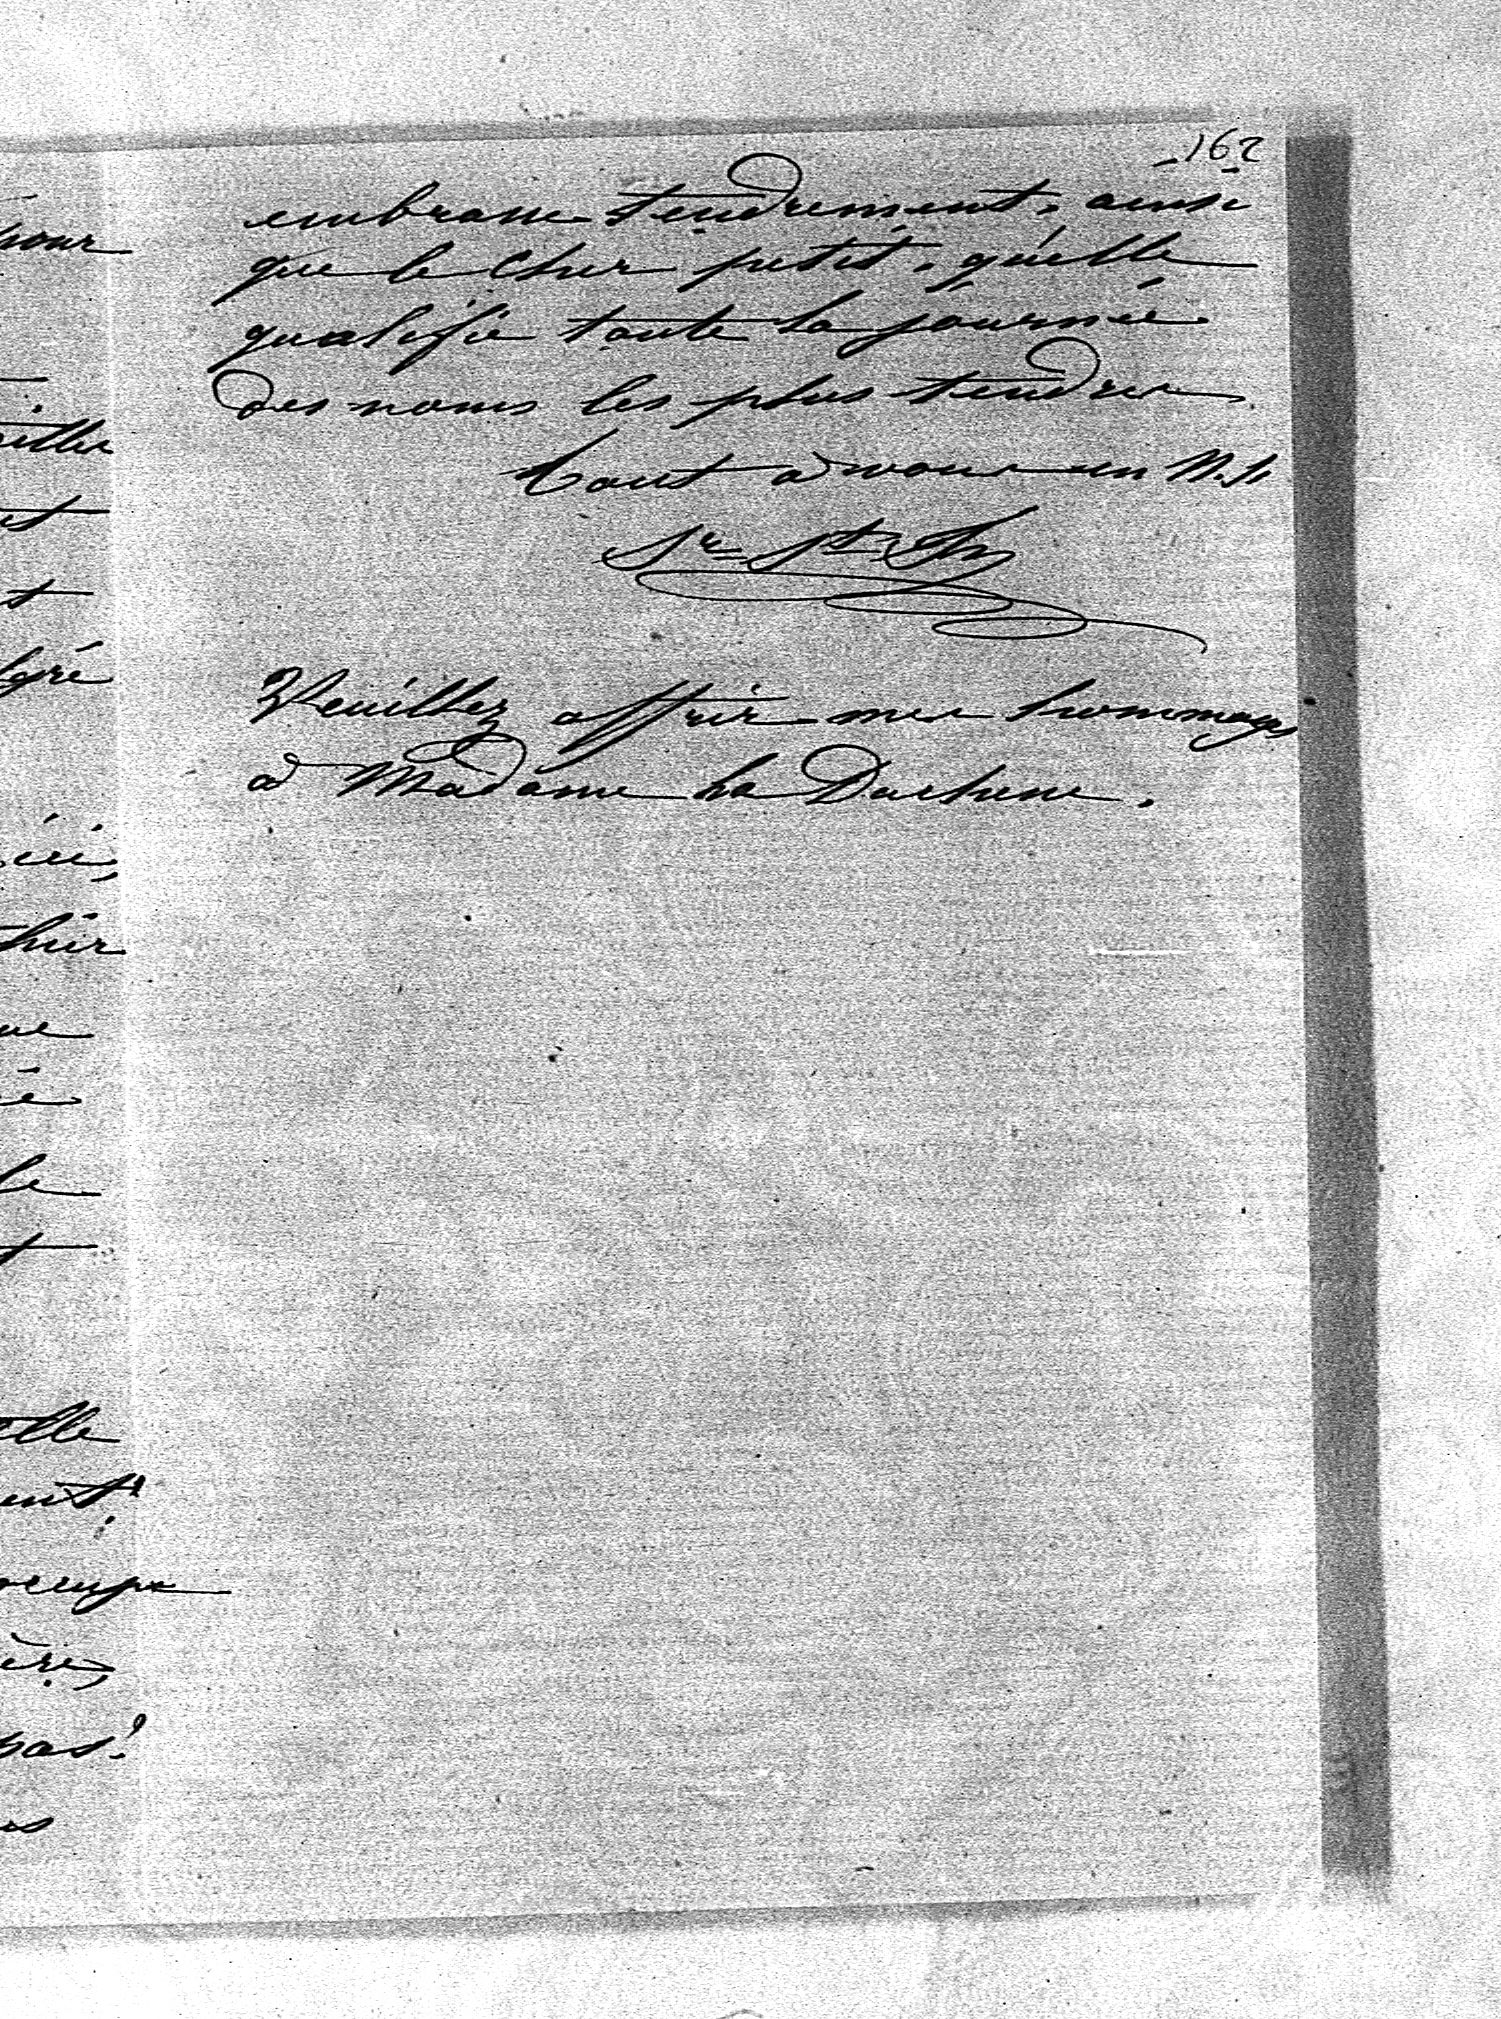 162
embrasse tendrement, ainsi
que le cher petit, qu'elle
qualifie toute la journée
des noms les plus tendres
Tout à vous en N. S.
Sr St
Veuillez offrir mes hommages
à Madame la Duchesse.
pour
et
t
le
t
elle
pas!